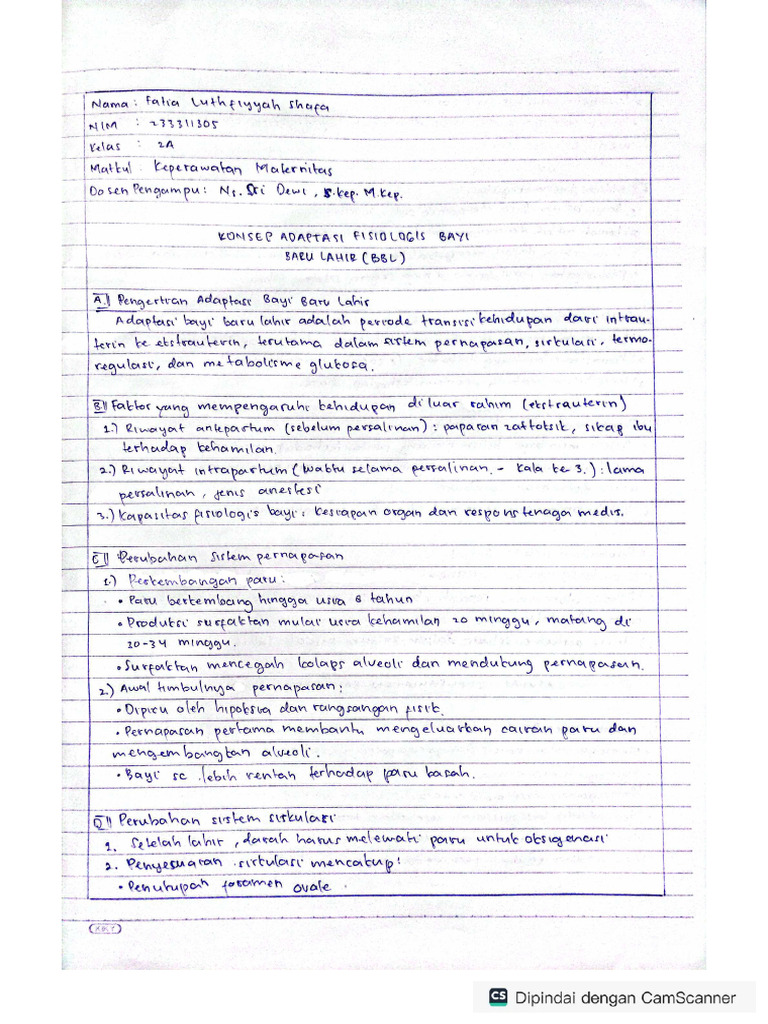 Nama : Fatia Luthfiyyah Shafa
NIM : 233311305
Kelas : 2A
Matkul : Keperawatan Maternitas
Dosen Pengampu : Ns. Sri Dewi, S.Kep. M.Kep.
KONSEP ADAPTASI FISIOLOGIS BAYI
BARU LAHIR (BBL)
A.) Pengertian Adaptasi Bayi Baru Lahir
Adaptasi bayi baru lahir adalah periode transisi kehidupan dari intrau-
terin ke ekstrauterin, terutama dalam sistem pernapasan, sirkulasi, termo-
regulasi, dan metabolisme glukosa.
B.) Faktor yang mempengaruhi kehidupan di luar rahim (ekstrauterin)
1.) Riwayat antepartum (sebelum persalinan) : paparan zat toksik, sikap ibu
terhadap kehamilan.
2.) Riwayat intrapartum (waktu selama persalinan. - kala ke 3.) : lama
persalinan, jenis anestesi
3.) Kapasitas fisiologis bayi : kesiapan organ dan respons tenaga medis.
C.) Perubahan sistem pernapasan
1.) Perkembangan paru :
• Paru berkembang hingga usia 8 tahun
• Produksi surfaktan mulai usia kehamilan 20 minggu, matang di
30-34 minggu.
• Surfaktan mencegah kolaps alveoli dan mendukung pernapasan.
2.) Awal timbulnya pernapasan :
• Dipicu oleh hipoksia dan rangsangan fisik.
• Pernapasan pertama membantu mengeluarkan cairan paru dan
mengembangkan alveoli.
• Bayi sc lebih rentan terhadap paru basah.
D.) Perubahan sistem sirkulasi
1. Setelah lahir, darah harus melewati paru untuk oksigenasi
2. Penyesuaian sirkulasi mencakup :
• Penutupan foramen ovale.
CS Dipindai dengan CamScanner